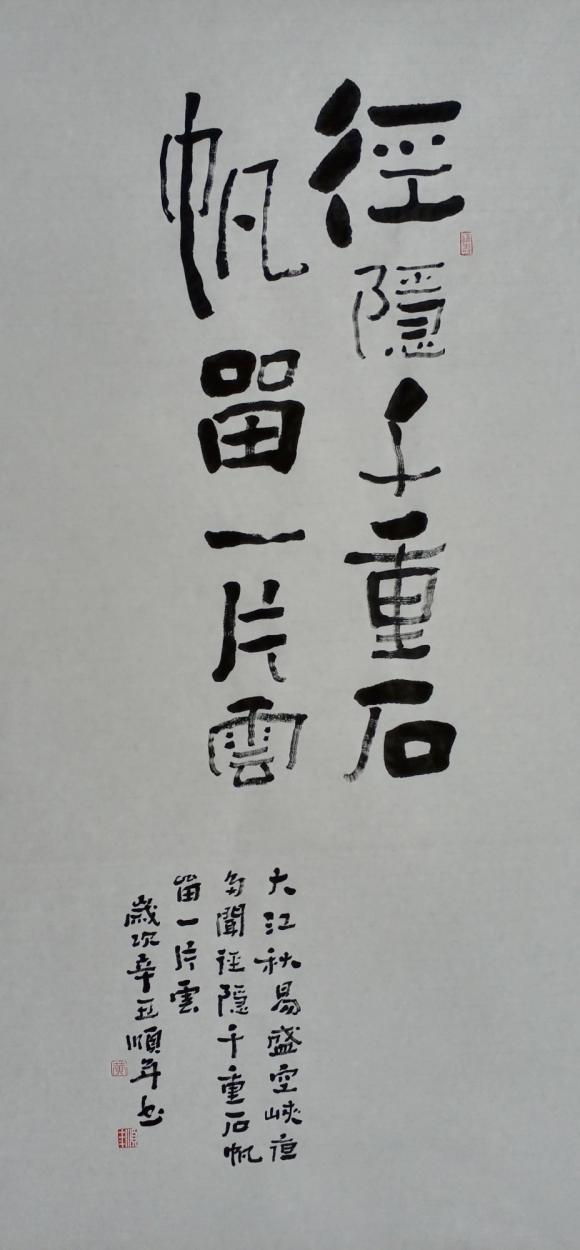 徑隱千重石
帆留一片雲
大江秋易盛空峽夜
多聞徑隱千重石帆
留一片雲
歲次辛丑順年书